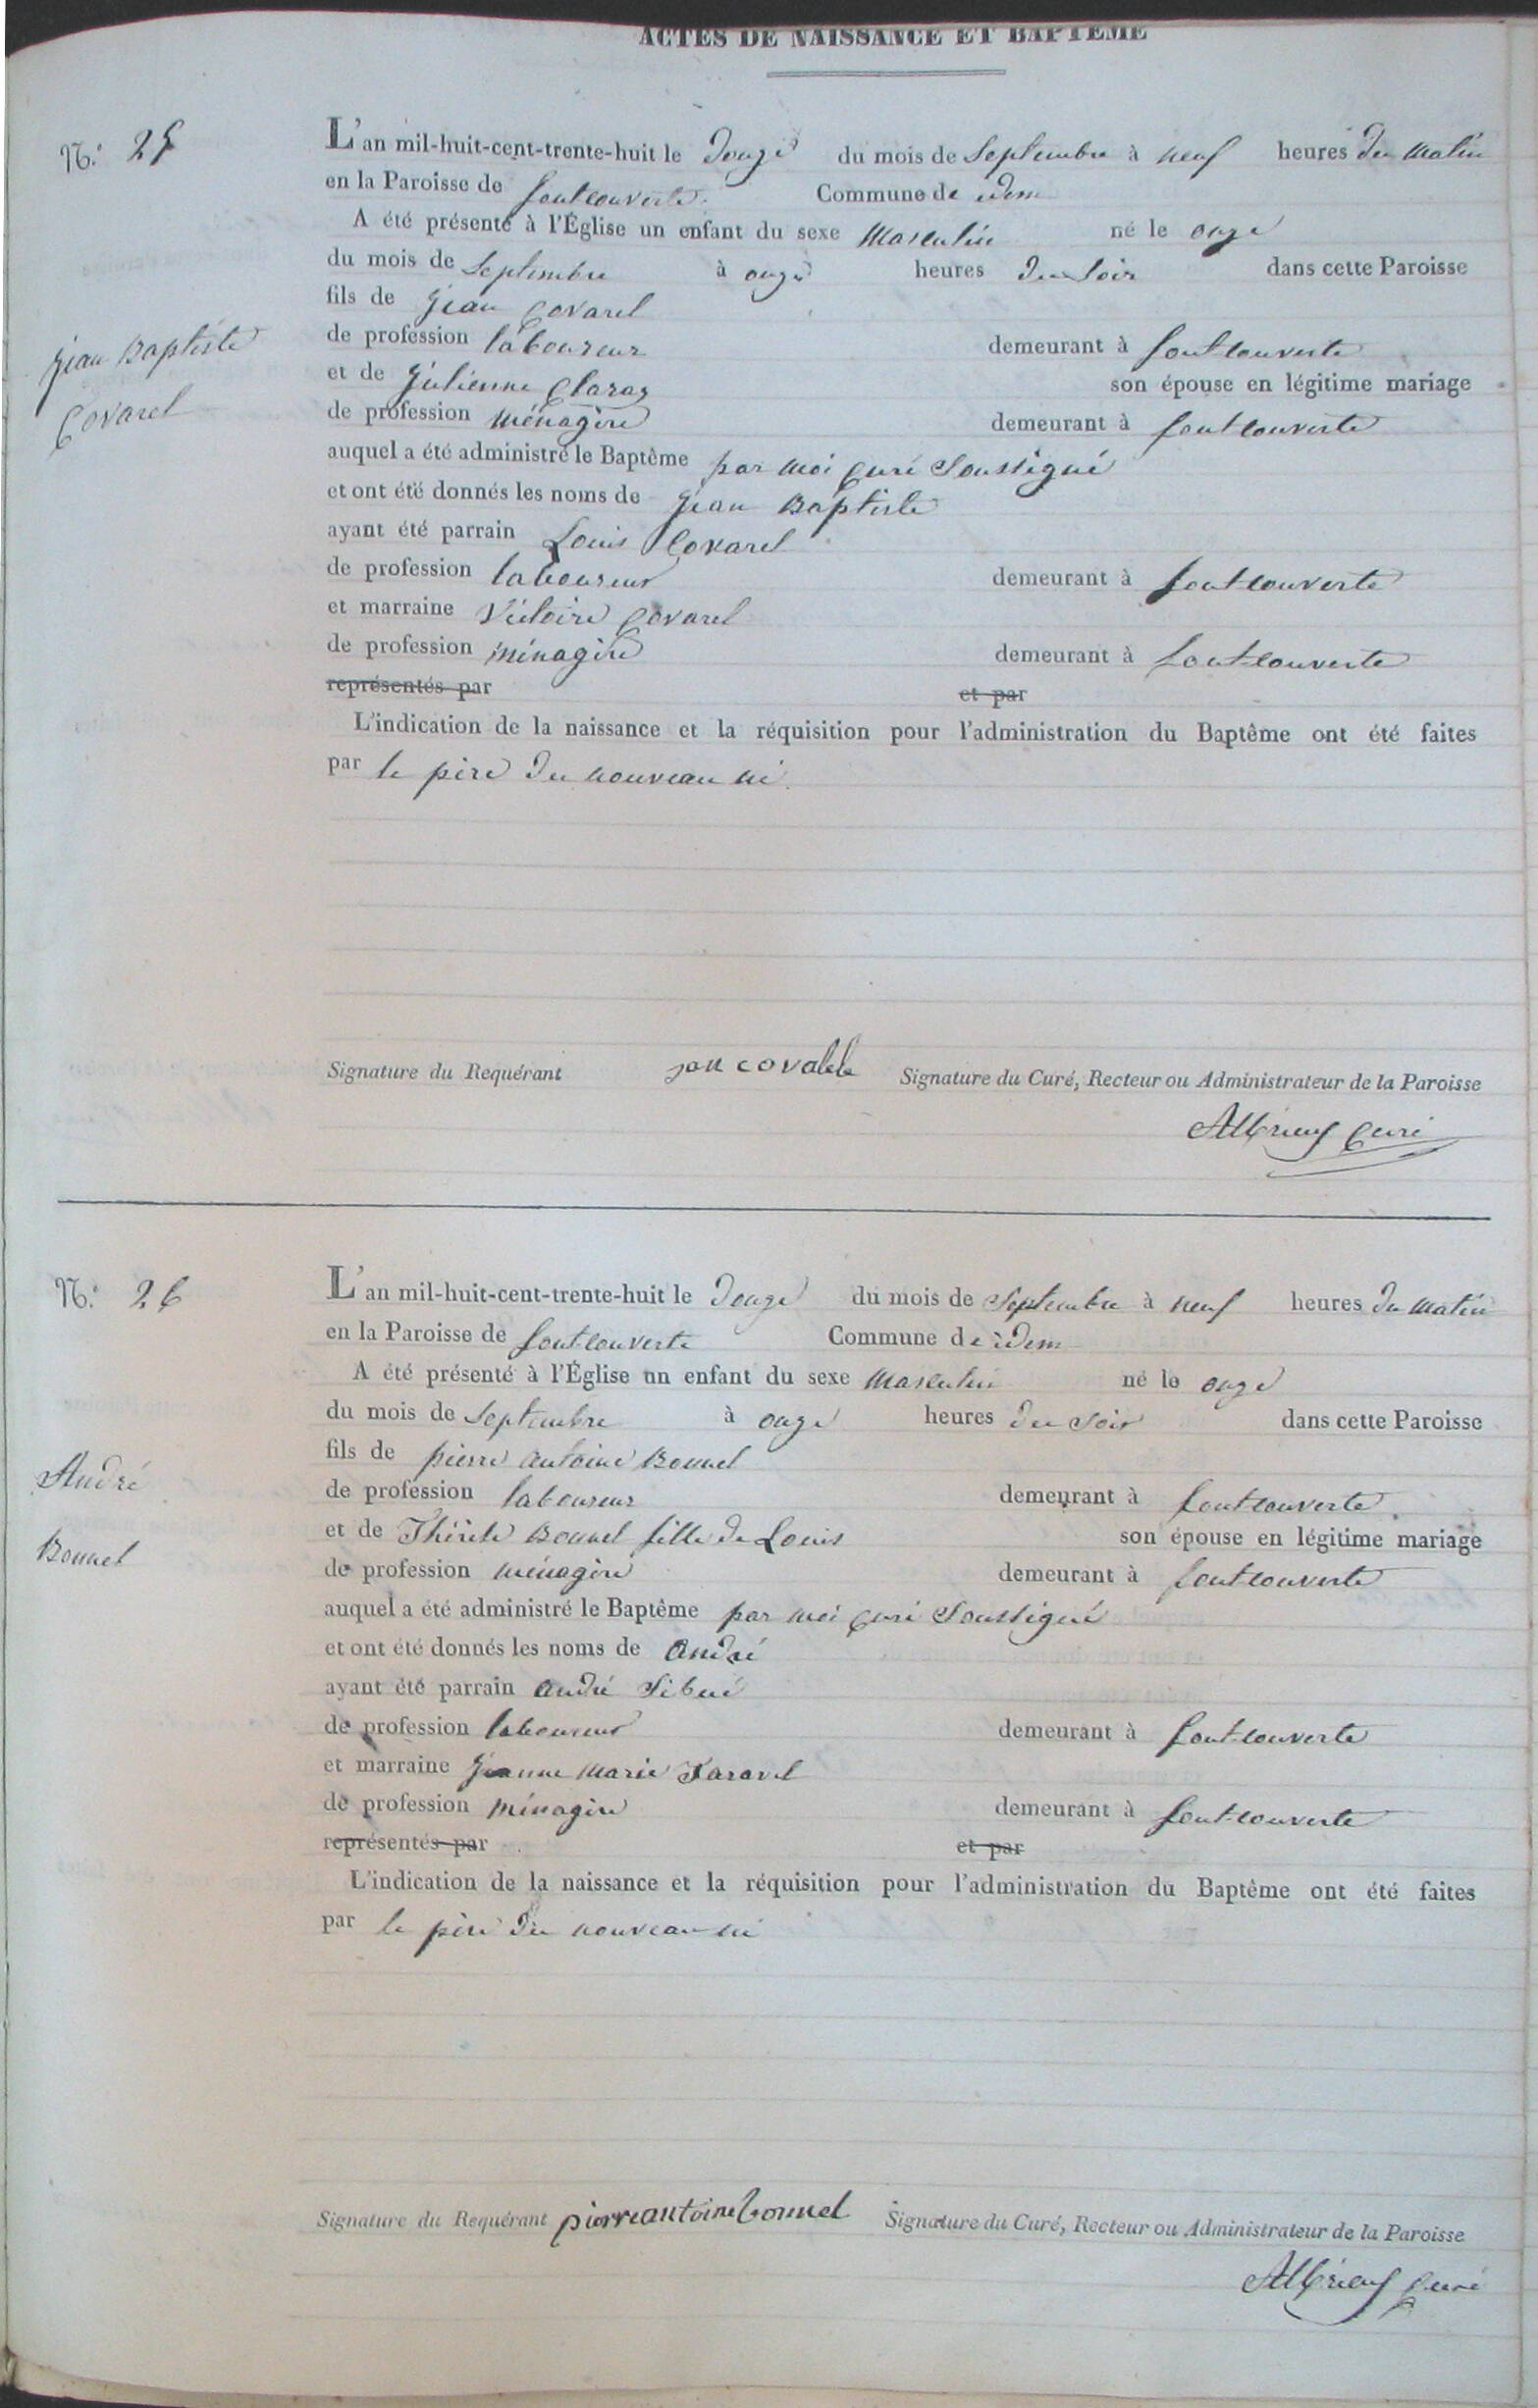 ACTES DE NAISSANCE ET BAPTÊME
N.º 25
L'an mil-huit-cent-trente-huit le douze du mois de Septembre à neuf heures du matin
en la Paroisse de fontcouverte Commune de idem
A été présenté à l'Église un enfant du sexe masculin né le onze
du mois de Septembre à onze heures du soir dans cette Paroisse
fils de jean Covarel
jean Baptiste
Covarel
de profession laboureur demeurant à fontcouverte
et de julienne Claraz son épouse en légitime mariage
de profession ménagère demeurant à fontcouverte
auquel a été administré le Baptême par moi curé Soussigné
et ont été donnés les noms de jean Baptiste
ayant été parrain Louis Covarel
de profession laboureur demeurant à fontcouverte
et marraine Victoire Covarel
de profession ménagère demeurant à fontcouverte
représentés par et par
L'indication de la naissance et la réquisition pour l'administration du Baptême ont été faites
par le père du nouveau né.
Signature du Requérant jan covalele Signature du Curé, Recteur ou Administrateur de la Paroisse
Albrieux curé
N.º 26
L'an mil-huit-cent-trente-huit le douze du mois de Septembre à neuf heures du matin
en la Paroisse de fontcouverte Commune de idem
A été présenté à l'Église un enfant du sexe masculin né le onze
du mois de Septembre à onze heures du soir dans cette Paroisse
fils de pierre antoine Bonnel
André
Bonnel
de profession laboureur demeurant à fontcouverte
et de Thérèse Bonnel fille de Louis son épouse en légitime mariage
de profession ménagère demeurant à fontcouverte
auquel a été administré le Baptême par moi curé Soussigné
et ont été donnés les noms de andré
ayant été parrain andré Sibué
de profession laboureur demeurant à fontcouverte
et marraine jeanne marie Taravel
de profession ménagère demeurant à fontcouverte
représentés par et par
L'indication de la naissance et la réquisition pour l'administration du Baptême ont été faites
par le père du nouveau né
Signature du Requérant pierre antoine bonnel Signature du Curé, Recteur ou Administrateur de la Paroisse
Albrieux curé